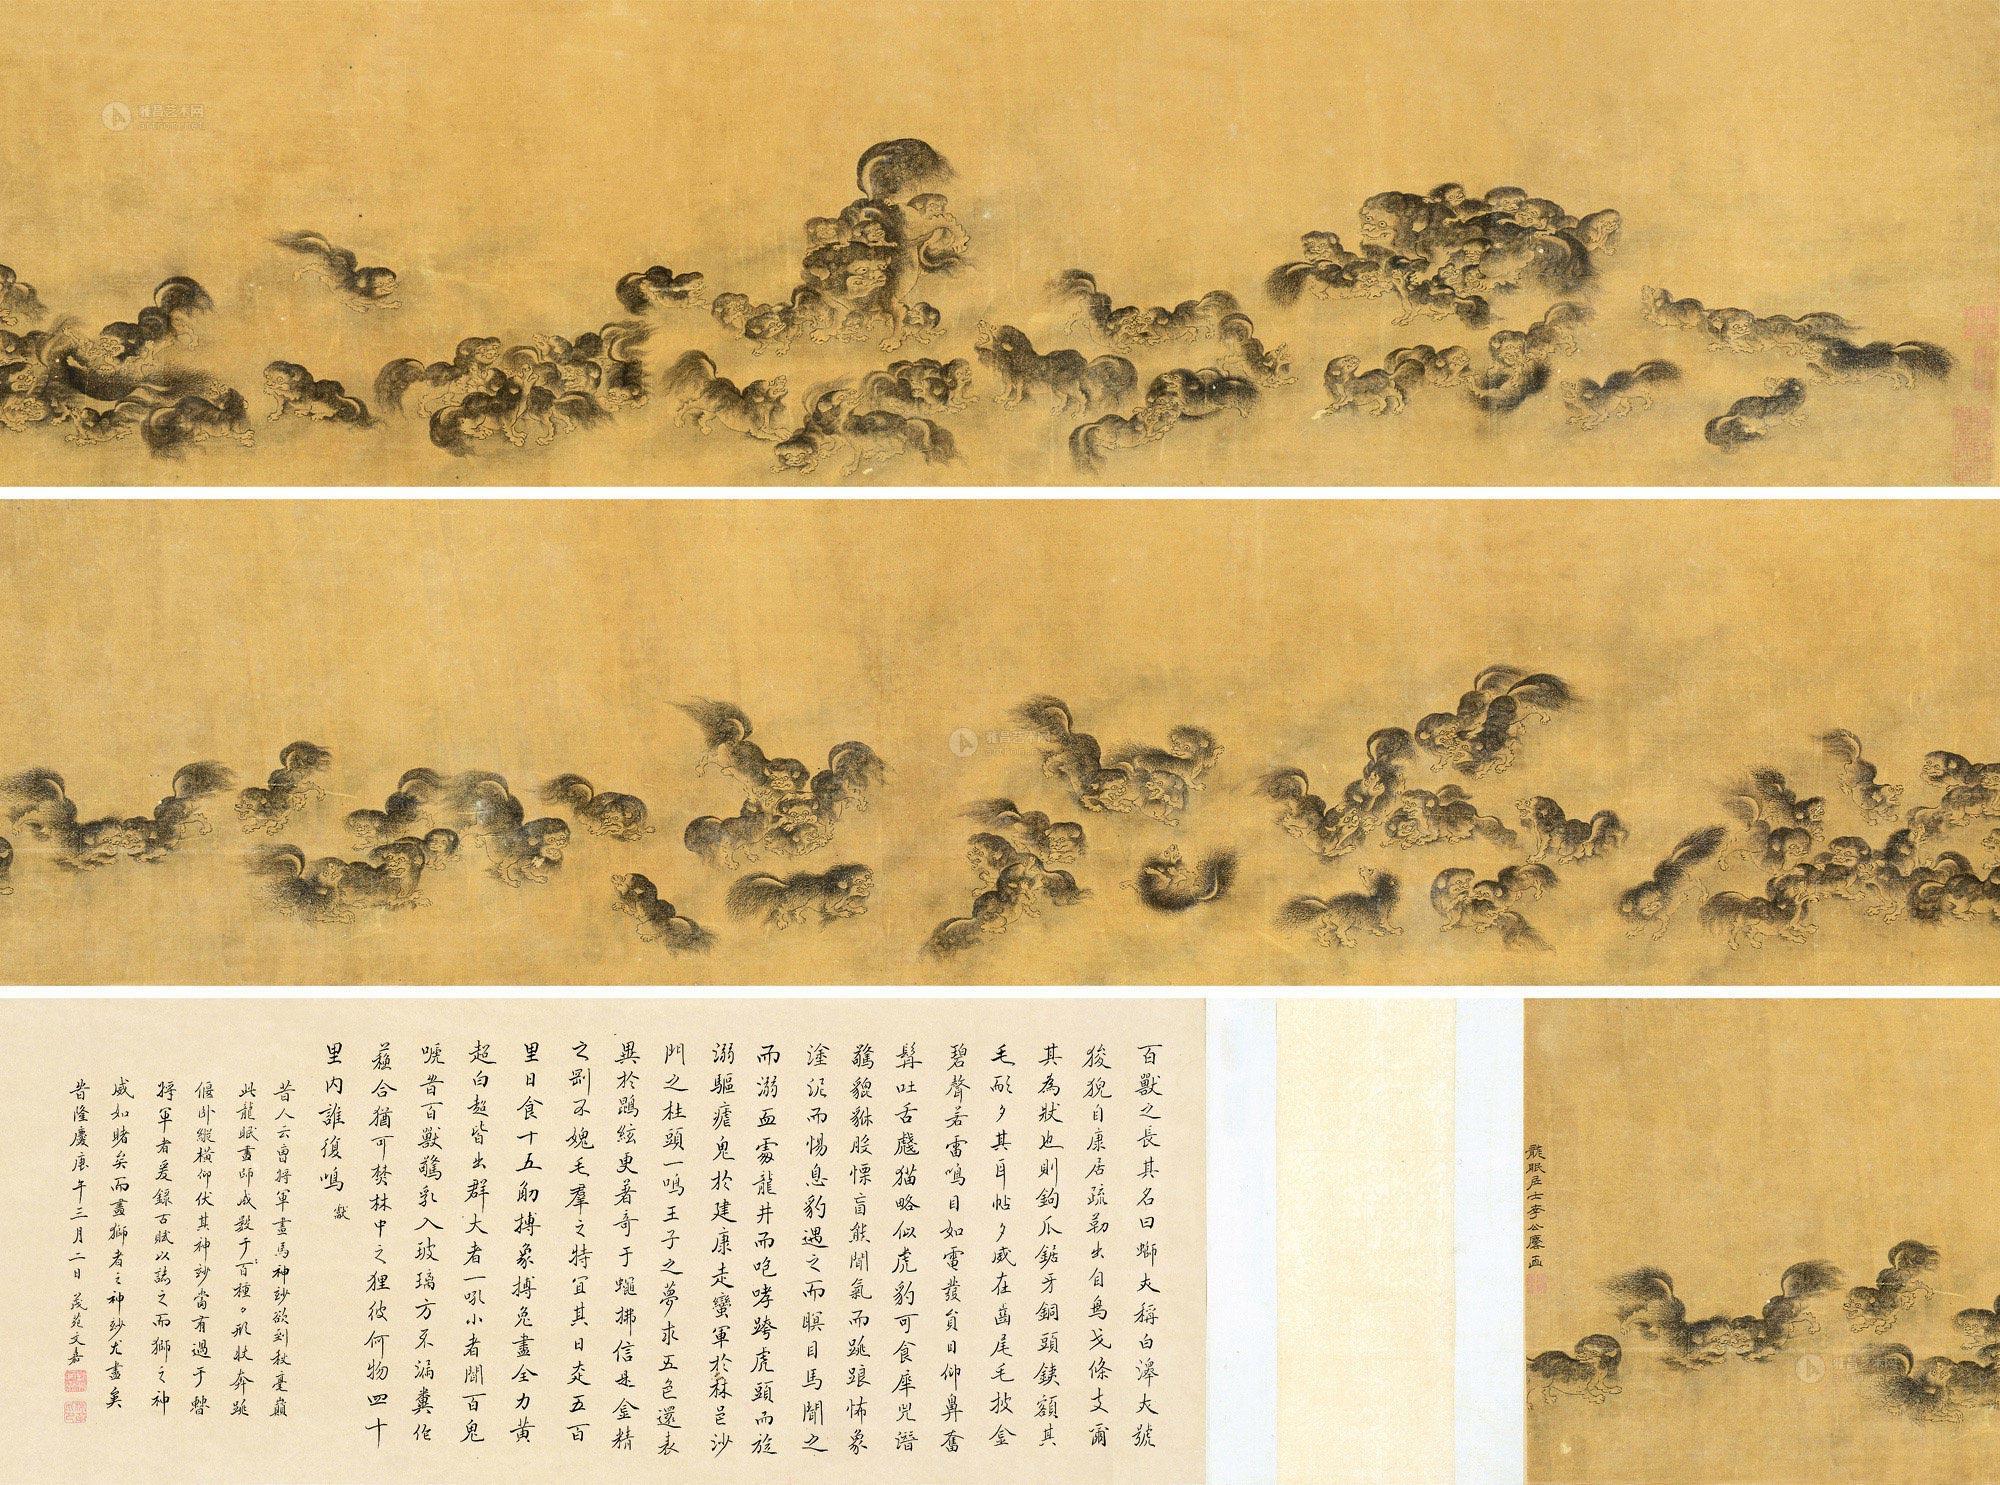 雅昌艺术网
artron.net
龍眠居士李公麐画
百獸之長其名曰螄夾稱白澤夾號
狻猊自康居疏勒出自鳥戈條支爾
其為狀也則鉤爪鋸牙銅頭鐵額其
毛耏夕其耳帖夕威在齒尾毛披金
碧聲若雷鳴目如電發負日仰鼻奮
髯吐舌虥猫略似虎豹可食犀兕潛
驚貔貅股慄盲熊聞氣而跳踉怖象
塗泥而惕息豹遇之而瞑目馬聞之
而溺血處龍井而咆哮跨虎頭而旋
溺驅瘧鬼於建康走蠻軍於林邑沙
門之柱頭一鳴王子之夢求五色還表
異於鵾絃更著奇于蠅拂信是金精
之剛不媿毛羣之特宜其日走五百
里日食十五觔搏象搏兔盡全力黃
超白超皆出群大者一吼小者聞百鬼
唬昔百獸驚乳入玻璃方不漏糞作
蘓合猶可焚林中之狸彼何物四十
里內誰復鳴
昔人云曹將軍畫馬神玅欲到秋毫巔
此龍眠畫師成數于百種形狀奔跳
偃卧縱橫仰伏其神玅當有過于曹
將軍者爰錄古賦以誌之而獅之神
威如睹矣而畫獅者之神玅尤盡矣
昔隆慶庚午三月二日茂苑文嘉